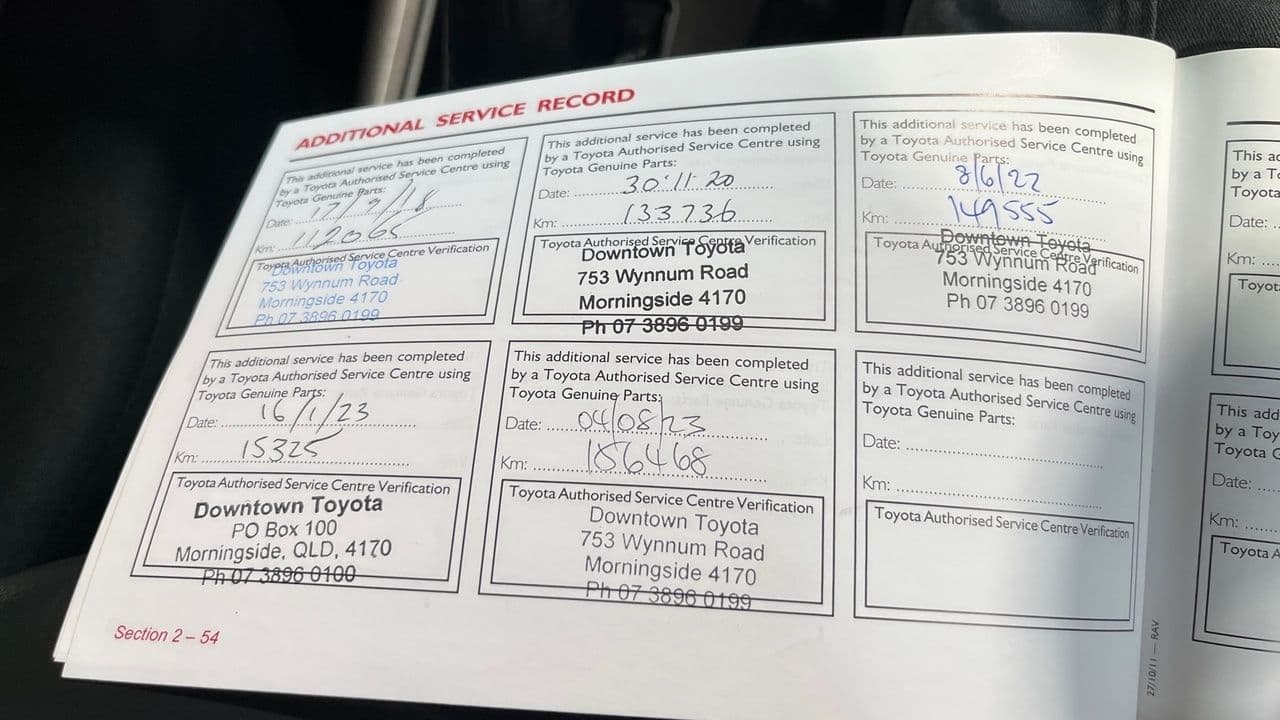 ADDITIONAL SERVICE RECORD
This additional service has been completed
by a Toyota Authorised Service Centre using
Toyota Genuine Parts:
Date: 17/9/18
Km: 112065
Toyota Authorised Service Centre Verification
Downtown Toyota
753 Wynnum Road
Morningside 4170
Ph 07 3896 0199
This additional service has been completed
by a Toyota Authorised Service Centre using
Toyota Genuine Parts:
Date: 30·11·20
Km: 133736
Toyota Authorised Service Centre Verification
Downtown Toyota
753 Wynnum Road
Morningside 4170
Ph 07 3896 0199
This additional service has been completed
by a Toyota Authorised Service Centre using
Toyota Genuine Parts:
Date: 8/6/22
Km: 149555
Toyota Authorised Service Centre Verification
Downtown Toyota
753 Wynnum Road
Morningside 4170
Ph 07 3896 0199
This additional service has been completed
by a Toyota Authorised Service Centre using
Toyota Genuine Parts:
Date: 16/1/23
Km: 15325
Toyota Authorised Service Centre Verification
Downtown Toyota
PO Box 100
Morningside, QLD, 4170
Ph 07 3896 0100
This additional service has been completed
by a Toyota Authorised Service Centre using
Toyota Genuine Parts:
Date: 04/08/23
Km: 156468
Toyota Authorised Service Centre Verification
Downtown Toyota
753 Wynnum Road
Morningside 4170
Ph 07 3896 0199
This additional service has been completed
by a Toyota Authorised Service Centre using
Toyota Genuine Parts:
Date:
Km:
Toyota Authorised Service Centre Verification
Section 2 – 54
27/10/11 — RAV
This
by a
Toyota
Date:
Km:
This
by a
Toyota
Date:
Km:
Toyota